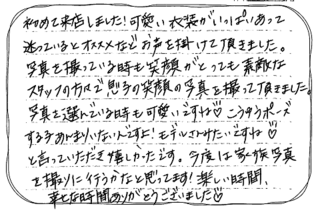 初めて来店しました!可愛い衣装がいっぱいあって
迷っているとオススメなどお声を掛けて頂きました。
写真を撮っている時も笑顔がとっても素敵な
スタッフの方々で息子の笑顔の写真を撮って頂きました。
写真を選んでいる時も可愛いですね♡こうゆうポーズ
する子あまりいないんですよ!モデルさんみたいですね♡
と言っていただき嬉しかったです。今度は家族写真
を撮りに行こうかなと思ってます!楽しい時間、
幸せな時間ありがとうございました♡